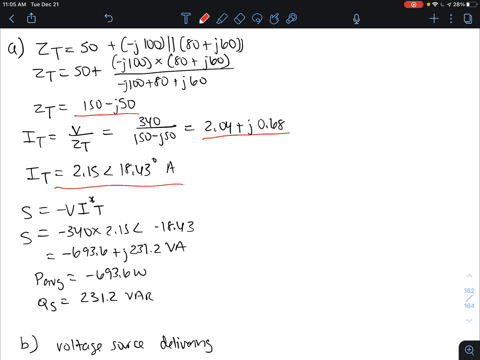 11:05 AM Tue Dec 21
28%
a) Z_T = 50 + (-j100) || (80 + j60)
Z_T = 50 + (-j100) × (80 + j60) / -j100 + 80 + j60
Z_T = 150 - j50
I_T = V / Z_T = 340 / 150 - j50 = 2.04 + j0.68
I_T = 2.15 < 18.43° A
S = -V I*_T
S = -340 × 2.15 < -18.43
= -693.6 + j231.2 VA
Pavg = -693.6 W
Q_S = 231.2 VAR
162
/
164
b) voltage source delivering